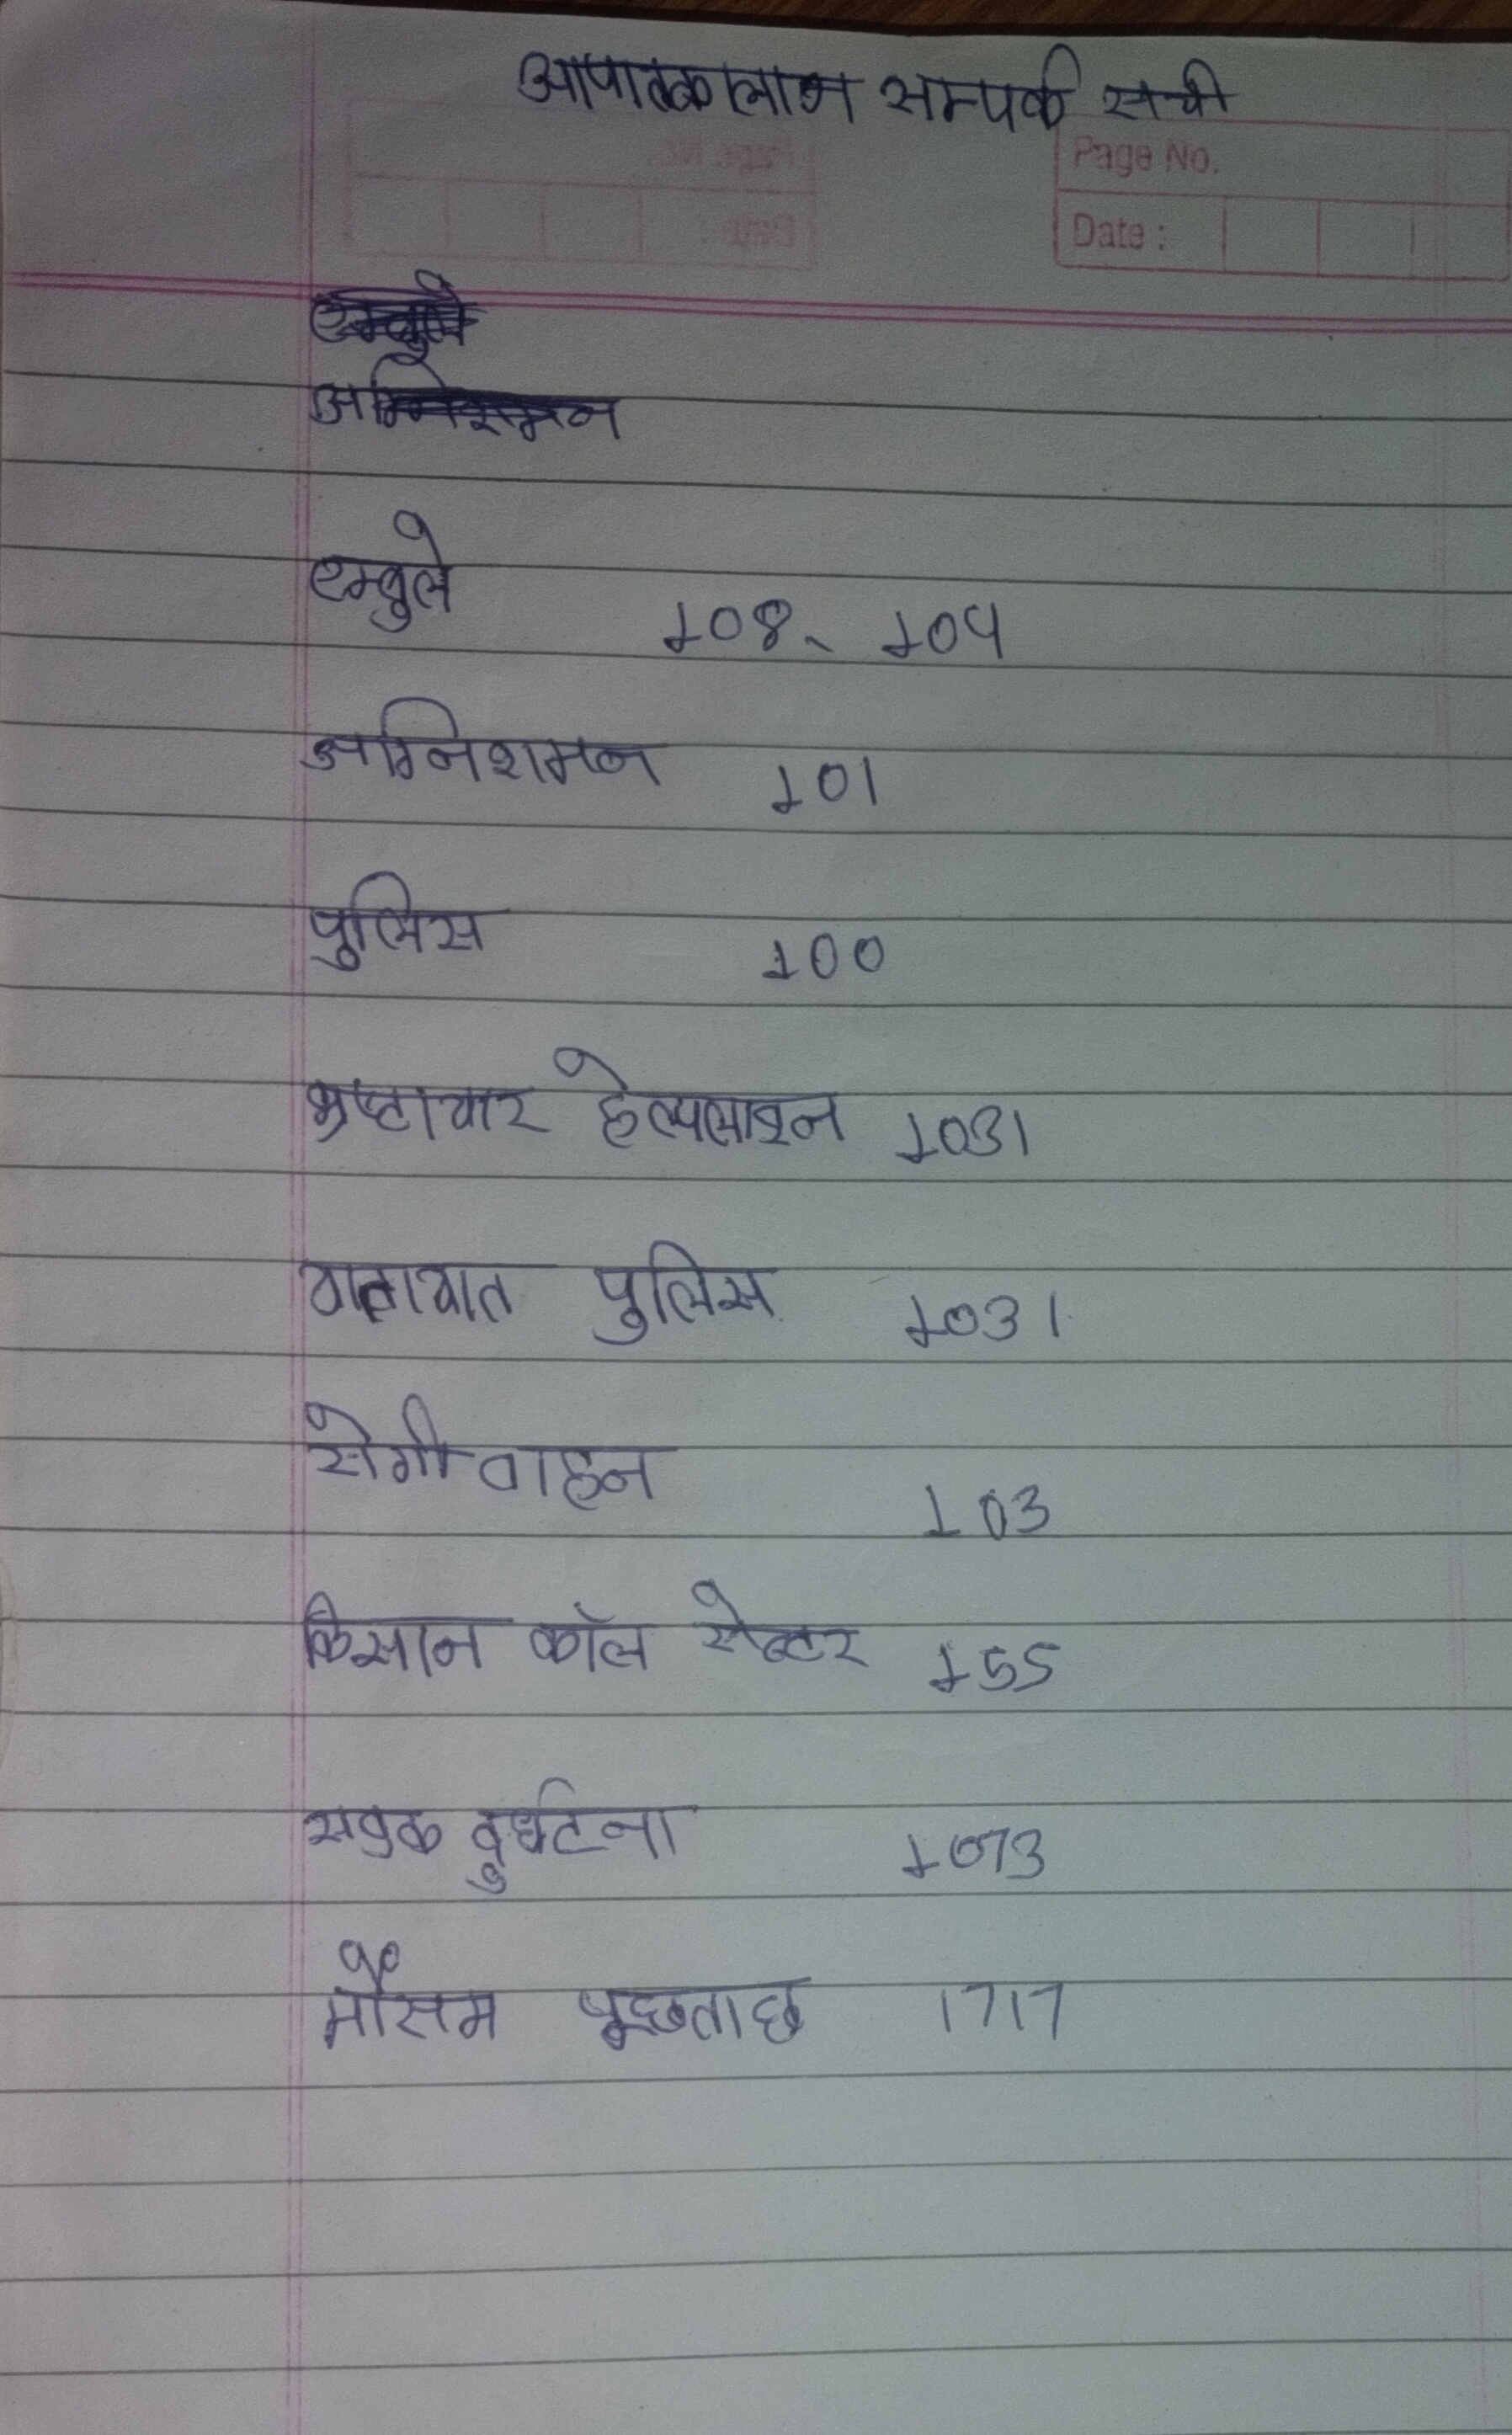 आपातकालान सम्पर्क सची
Page No.
Date :
एम्बुले
अग्निशमन
एम्बुले 108, 104
अग्निशमन 101
पुलिस 100
भ्रष्टाचार हेल्पलाइन 1031
यातायात पुलिस 1031
रोगी वाहन 103
किसान कॉल सेन्टर 155
सड़क दुर्घटना 1073
मौसम पूछताछ 1717